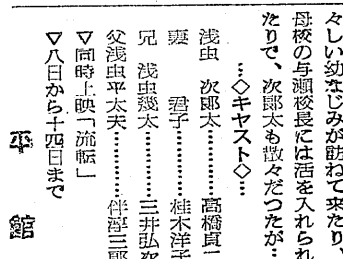 々しい幼なじみが訪ねて来たり、
母校の与瀬校長には活を入れられ
たりで、次郎太も散々だつたが…
…◇キヤスト◇…
浅虫 次郎太………高橋貞二
妻 君子………桂木洋子
兄 浅虫幾太………三井弘次
父浅虫平太夫………伴淳三郎
▽同時上映「流転」
▽八日から十四日まで
平館